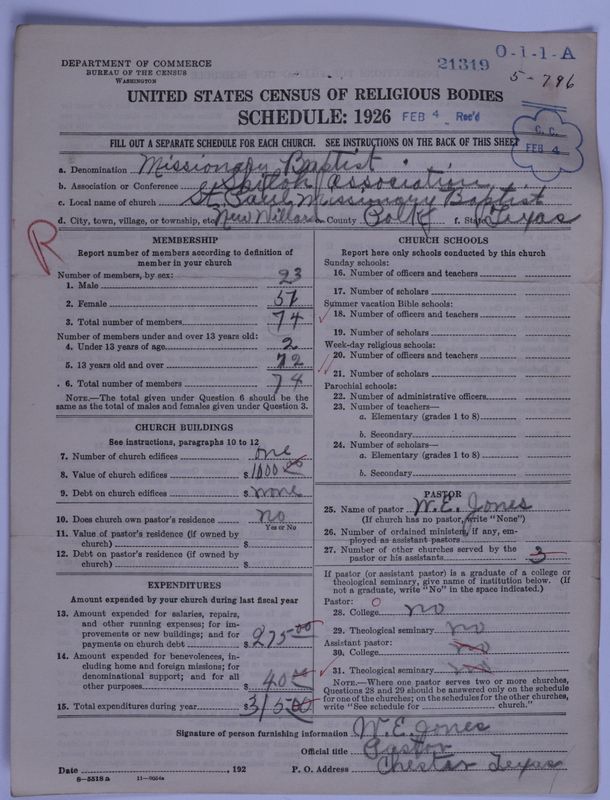 O-1-1-A
21319
5-796
DEPARTMENT OF COMMERCE
BUREAU OF THE CENSUS
WASHINGTON
UNITED STATES CENSUS OF RELIGIOUS BODIES
SCHEDULE: 1926 FEB 4 Rec'd
FILL OUT A SEPARATE SCHEDULE FOR EACH CHURCH. SEE INSTRUCTIONS ON THE BACK OF THIS SHEET
C. C.
FEB 4
a. Denomination Missionary Baptist
b. Association or Conference Shiloh Association
c. Local name of church St Paul Missionary Baptist
d. City, town, village, or township, etc. New Willard e. County Polk f. State Texas
R
MEMBERSHIP
Report number of members according to definition of
member in your church
Number of members, by sex:
1. Male 23
2. Female 51
3. Total number of members 74
Number of members under and over 13 years old:
4. Under 13 years of age 2
5. 13 years old and over 72
6. Total number of members 74
NOTE.—The total given under Question 6 should be the
same as the total of males and females given under Question 3.
CHURCH BUILDINGS
See instructions, paragraphs 10 to 12
7. Number of church edifices one
8. Value of church edifices $ 1000 00
9. Debt on church edifices $ none
10. Does church own pastor's residence no
Yes or No
11. Value of pastor's residence (if owned by
church) $
12. Debt on pastor's residence (if owned by
church) $
EXPENDITURES
Amount expended by your church during last fiscal year
13. Amount expended for salaries, repairs,
and other running expenses; for im-
provements or new buildings; and for
payments on church debt $ 275 00
14. Amount expended for benevolences, in-
cluding home and foreign missions; for
denominational support; and for all
other purposes $ 40 00
15. Total expenditures during year $ 315 00
CHURCH SCHOOLS
Report here only schools conducted by this church
Sunday schools:
16. Number of officers and teachers
17. Number of scholars
Summer vacation Bible schools:
18. Number of officers and teachers
19. Number of scholars
Week-day religious schools:
20. Number of officers and teachers
21. Number of scholars
Parochial schools:
22. Number of administrative officers
23. Number of teachers—
a. Elementary (grades 1 to 8)
b. Secondary
24. Number of scholars—
a. Elementary (grades 1 to 8)
b. Secondary
PASTOR
25. Name of pastor W.E. Jones
(If church has no pastor, write "None")
26. Number of ordained ministers, if any, em-
ployed as assistant pastors
27. Number of other churches served by the
pastor or his assistants 3
If pastor (or assistant pastor) is a graduate of a college or
theological seminary, give name of institution below. (If
not a graduate, write "No" in the space indicated.)
Pastor:
28. College no
29. Theological seminary no
Assistant pastor:
30. College no
31. Theological seminary no
NOTE.—Where one pastor serves two or more churches,
Questions 28 and 29 should be answered only on the schedule
for one of the churches; on the schedules for the other churches,
write "See schedule for church."
Signature of person furnishing information W.E. Jones
Official title Pastor
Date , 192 P. O. Address Chester Texas
8-5318a 11-9664a